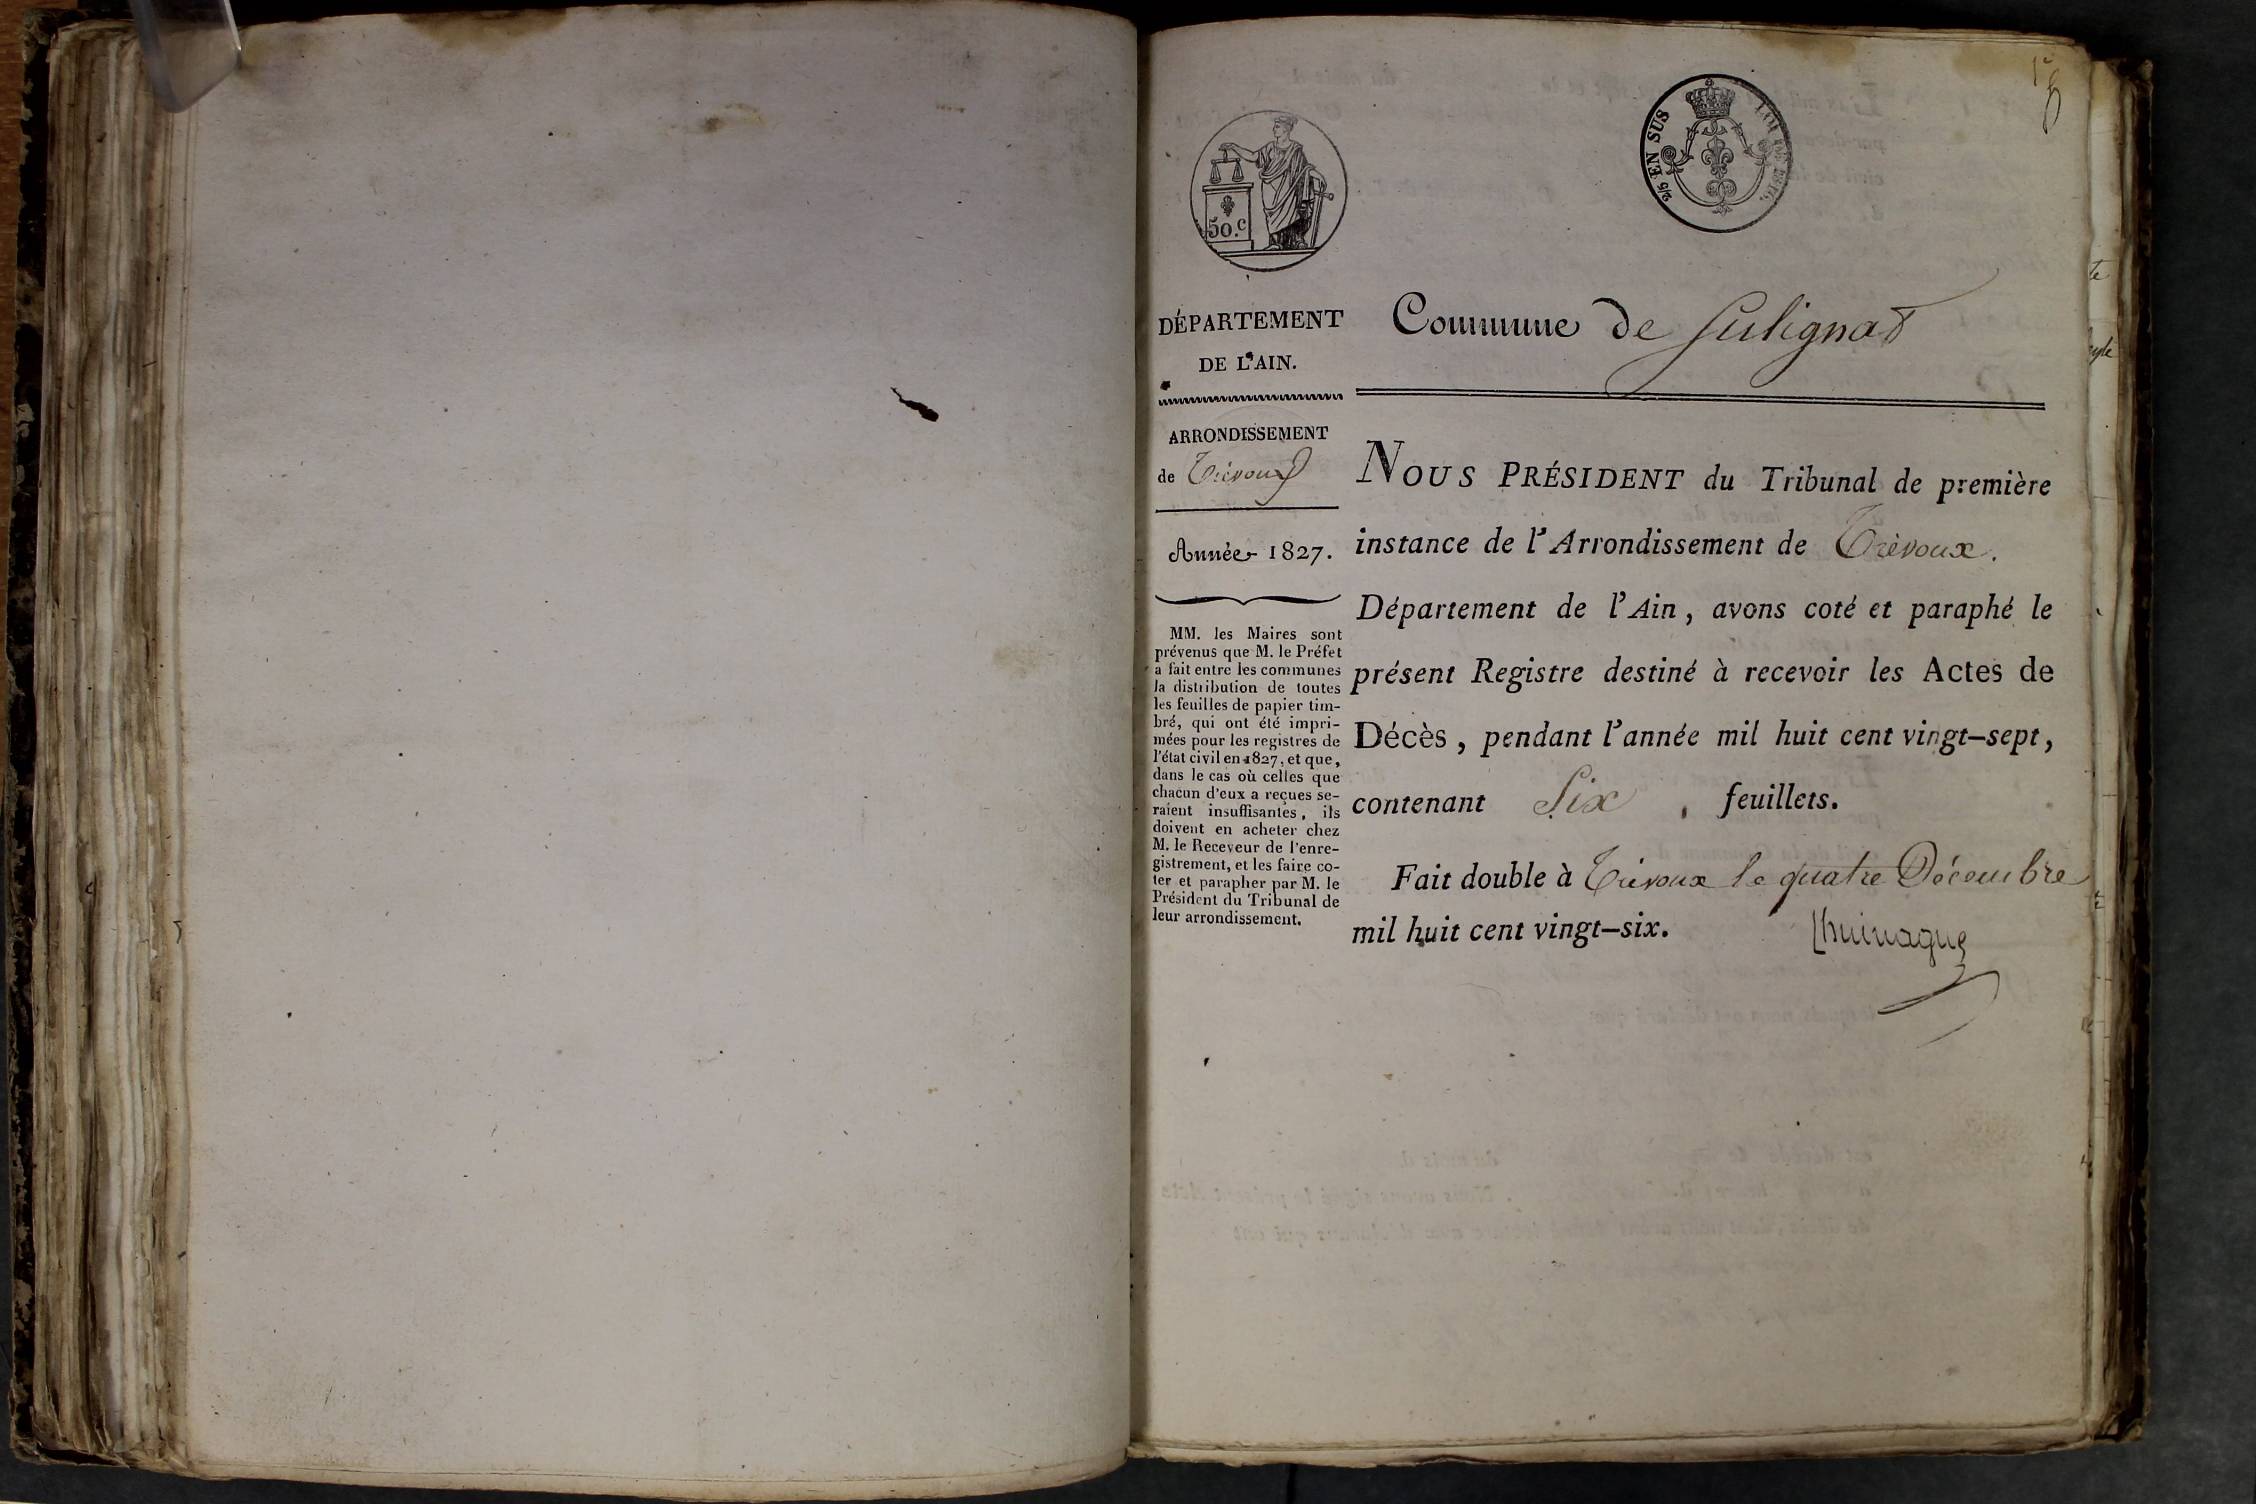 1er
50.c
2/5 EN SUS
DÉPARTEMENT
DE L'AIN.
ARRONDISSEMENT
de Trévoux
Année 1827.
MM. les Maires sont
prévenus que M. le Préfet
a fait entre les communes
la distribution de toutes
les feuilles de papier tim-
bré, qui ont été impri-
mées pour les registres de
l'état civil en 1827, et que,
dans le cas où celles que
chacun d'eux a reçues se-
raient insuffisantes, ils
doivent en acheter chez
M. le Receveur de l'enre-
gistrement, et les faire co-
ter et parapher par M. le
Président du Tribunal de
leur arrondissement.
Commune de Sulignat
NOUS PRÉSIDENT du Tribunal de première
instance de l'Arrondissement de Trévoux.
Département de l'Ain, avons coté et paraphé le
présent Registre destiné à recevoir les Actes de
Décès, pendant l'année mil huit cent vingt-sept,
contenant Six, feuillets.
Fait double à Trévoux le quatre Décembre
mil huit cent vingt-six.